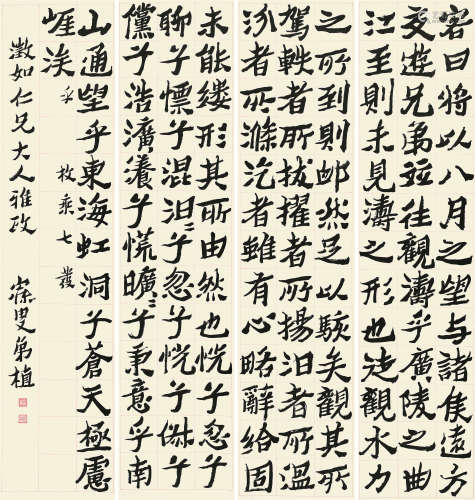 客曰將以八月之望與諸侯遠方
交遊兄弟竝往觀濤乎廣陵之曲
江至則未見濤之形也徒觀水力
之所到則卹然足以駭矣觀其所
駕軼者所拔擢者所揚汩者所溫
汾者所滌汔者雖有心略辭給固
未能縷形其所由然也怳兮忽兮
聊兮慄兮混汩〻兮忽兮怳兮俶兮
儻兮浩瀇瀁兮慌曠〻兮秉意乎南
山通望乎東海虹洞兮蒼天極慮
崕涘 乎 枚乘七發
澂如仁兄大人雅政 寐叟弟植